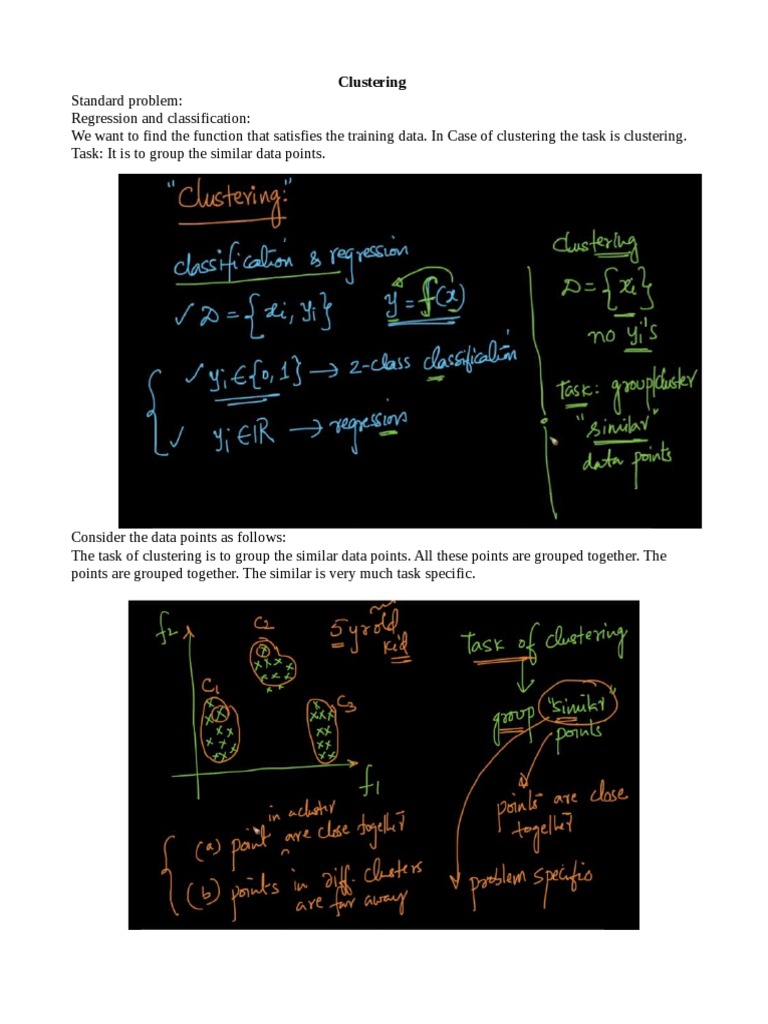 Clustering
Standard problem:
Regression and classification:
We want to find the function that satisfies the training data. In Case of clustering the task is clustering.
Task: It is to group the similar data points.
"Clustering:"
classification & regression
✓ D = {xi, yi} y = f(x)
✓ yi ∈ {0, 1} → 2-class classification
✓ yi ∈ IR → regression
Clustering
D = {xi}
no yi's
Task: group/cluster
"similar"
data points
Consider the data points as follows:
The task of clustering is to group the similar data points. All these points are grouped together. The
points are grouped together. The similar is very much task specific.
f2
C2
5 yr old
kid
C1
C3
f1
Task of clustering
group "similar"
points
points are close
together
problem specific
in a cluster
(a) point are close together
(b) points in diff. clusters
are far away